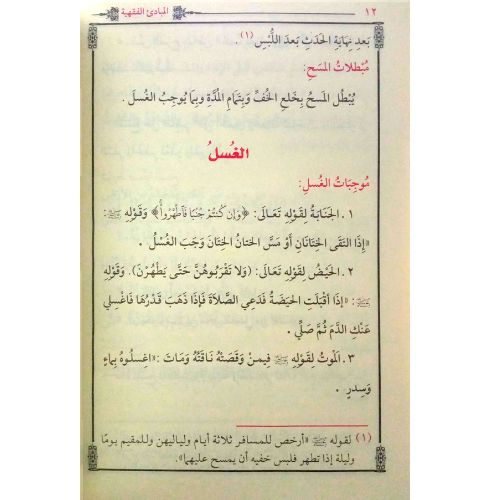 ١٢ المبادئ الفقهية
بَعدِ نِهايَةِ الحَدَثِ بَعدَ اللُّبْسِ (١).
مُبْطِلاتُ المَسحِ:
يُبْطُل المَسحُ بِخَلعِ الخُفِّ وَبِتَمامِ المُدَّة وبِما يُوجِبُ الغُسلَ .
الغُسلُ
مُوجِبَاتُ الغُسلِ:
١. الجَنَابَةُ لِقَولِهِ تَعَالَى: ﴿وَإِن كُنتُمْ جُنُبًا فَاطَّهَّرُوا﴾ وَقَولِهِ ﷺ:
«إِذَا التَقَى الخِتَانَانِ أَوْ مَسَّ الخِتانُ الخِتَانَ وَجَبَ الغُسْلُ .
٢. الحَيْضُ لِقَولِهِ تَعَالَى: (وَلا تَقْرَبُوهُنَّ حَتَّى يَطْهُرْنَ). وَقَولِهِ
ﷺ: «إِذَا أَقْبَلَتِ الحَيَضَةُ فَدَعِي الصَّلاَةَ فَإِذَا ذَهَبَ قَدْرُهَا فَاغْسِلِي
عَنْكِ الدَّمَ ثُمَّ صَلِّي .
٣. المَوتُ لِقَولِهِ ﷺ فِيمنْ وَقَصَتْهُ نَاقَتُهُ وَمَاتَ :«اغسِلُوهُ بِماءٍ
وَسِدرٍ .
(١) لقوله ﷺ «أرخص للمسافر ثلاثة أيام ولياليهن وللمقيم يومًا
وليلة إذا تطهر فلبس خفيه أن يمسح عليهما».